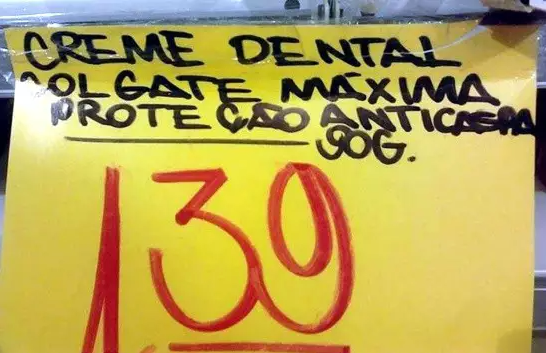 CREME DENTAL
COLGATE MÁXIMA
PROTEÇÃO ANTICASPA
90G.
1 39